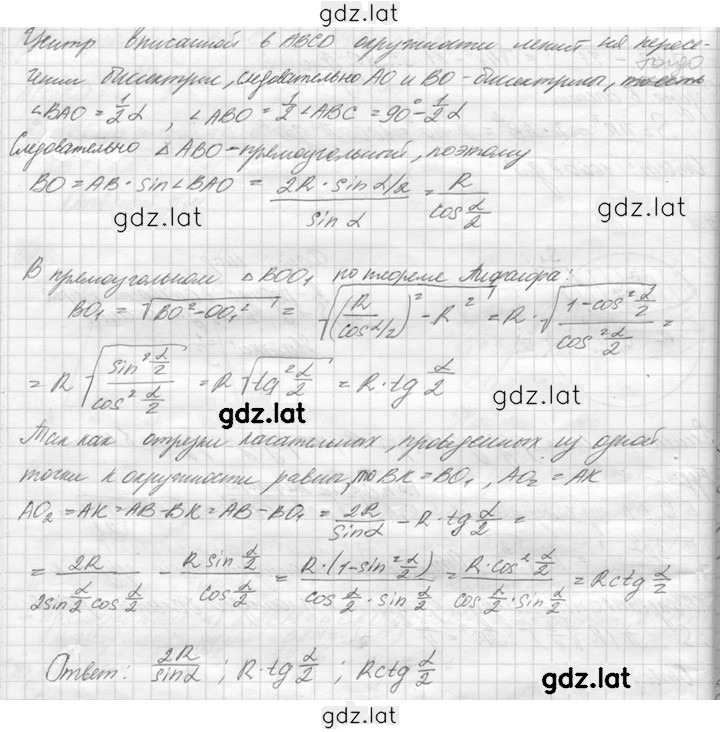 gdz.lat
Центр вписанной в ABCD окружности лежит на пересе-
чении биссектрис, следовательно AO и BO - биссектрисы, тогда
∠BAO = 1/2 α , ∠ABO = 1/2 ∠ABC = 90° - 1/2 α
Следовательно △ABO - прямоугольный, поэтому
BO = AB · sin∠BAO = 2R · sin α/2 / sin α = R / cos α/2
gdz.lat
gdz.lat
В прямоугольном △BOO₁ по теореме Пифагора:
BO₁ = √(BO² - OO₁²) = √((R / cos α/2)² - R²) = R · √((1 - cos² α/2) / cos² α/2) =
gdz.lat
= R √(sin² α/2 / cos² α/2) = R √(tg² α/2) = R · tg α/2
gdz.lat
Так как отрезки касательных, проведенных из одной
точки к окружности равны, то BK = BO₁, AO₂ = AK
AO₂ = AK = AB - BK = AB - BO₁ = 2R / sin α - R · tg α/2 =
= 2R / (2 sin α/2 cos α/2) - R sin α/2 / cos α/2 = R · (1 - sin² α/2) / (cos α/2 · sin α/2) = R · cos² α/2 / (cos α/2 · sin α/2) = R ctg α/2
Ответ: 2R / sin α ; R · tg α/2 ; R ctg α/2
gdz.lat
gdz.lat
gdz.lat